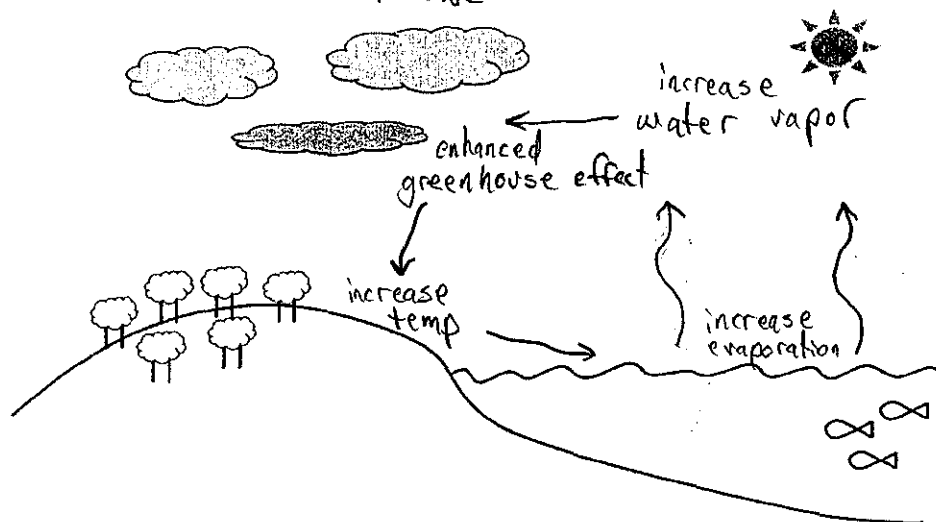 increase
water vapor
enhanced
greenhouse effect
increase
temp
increase
evaporation